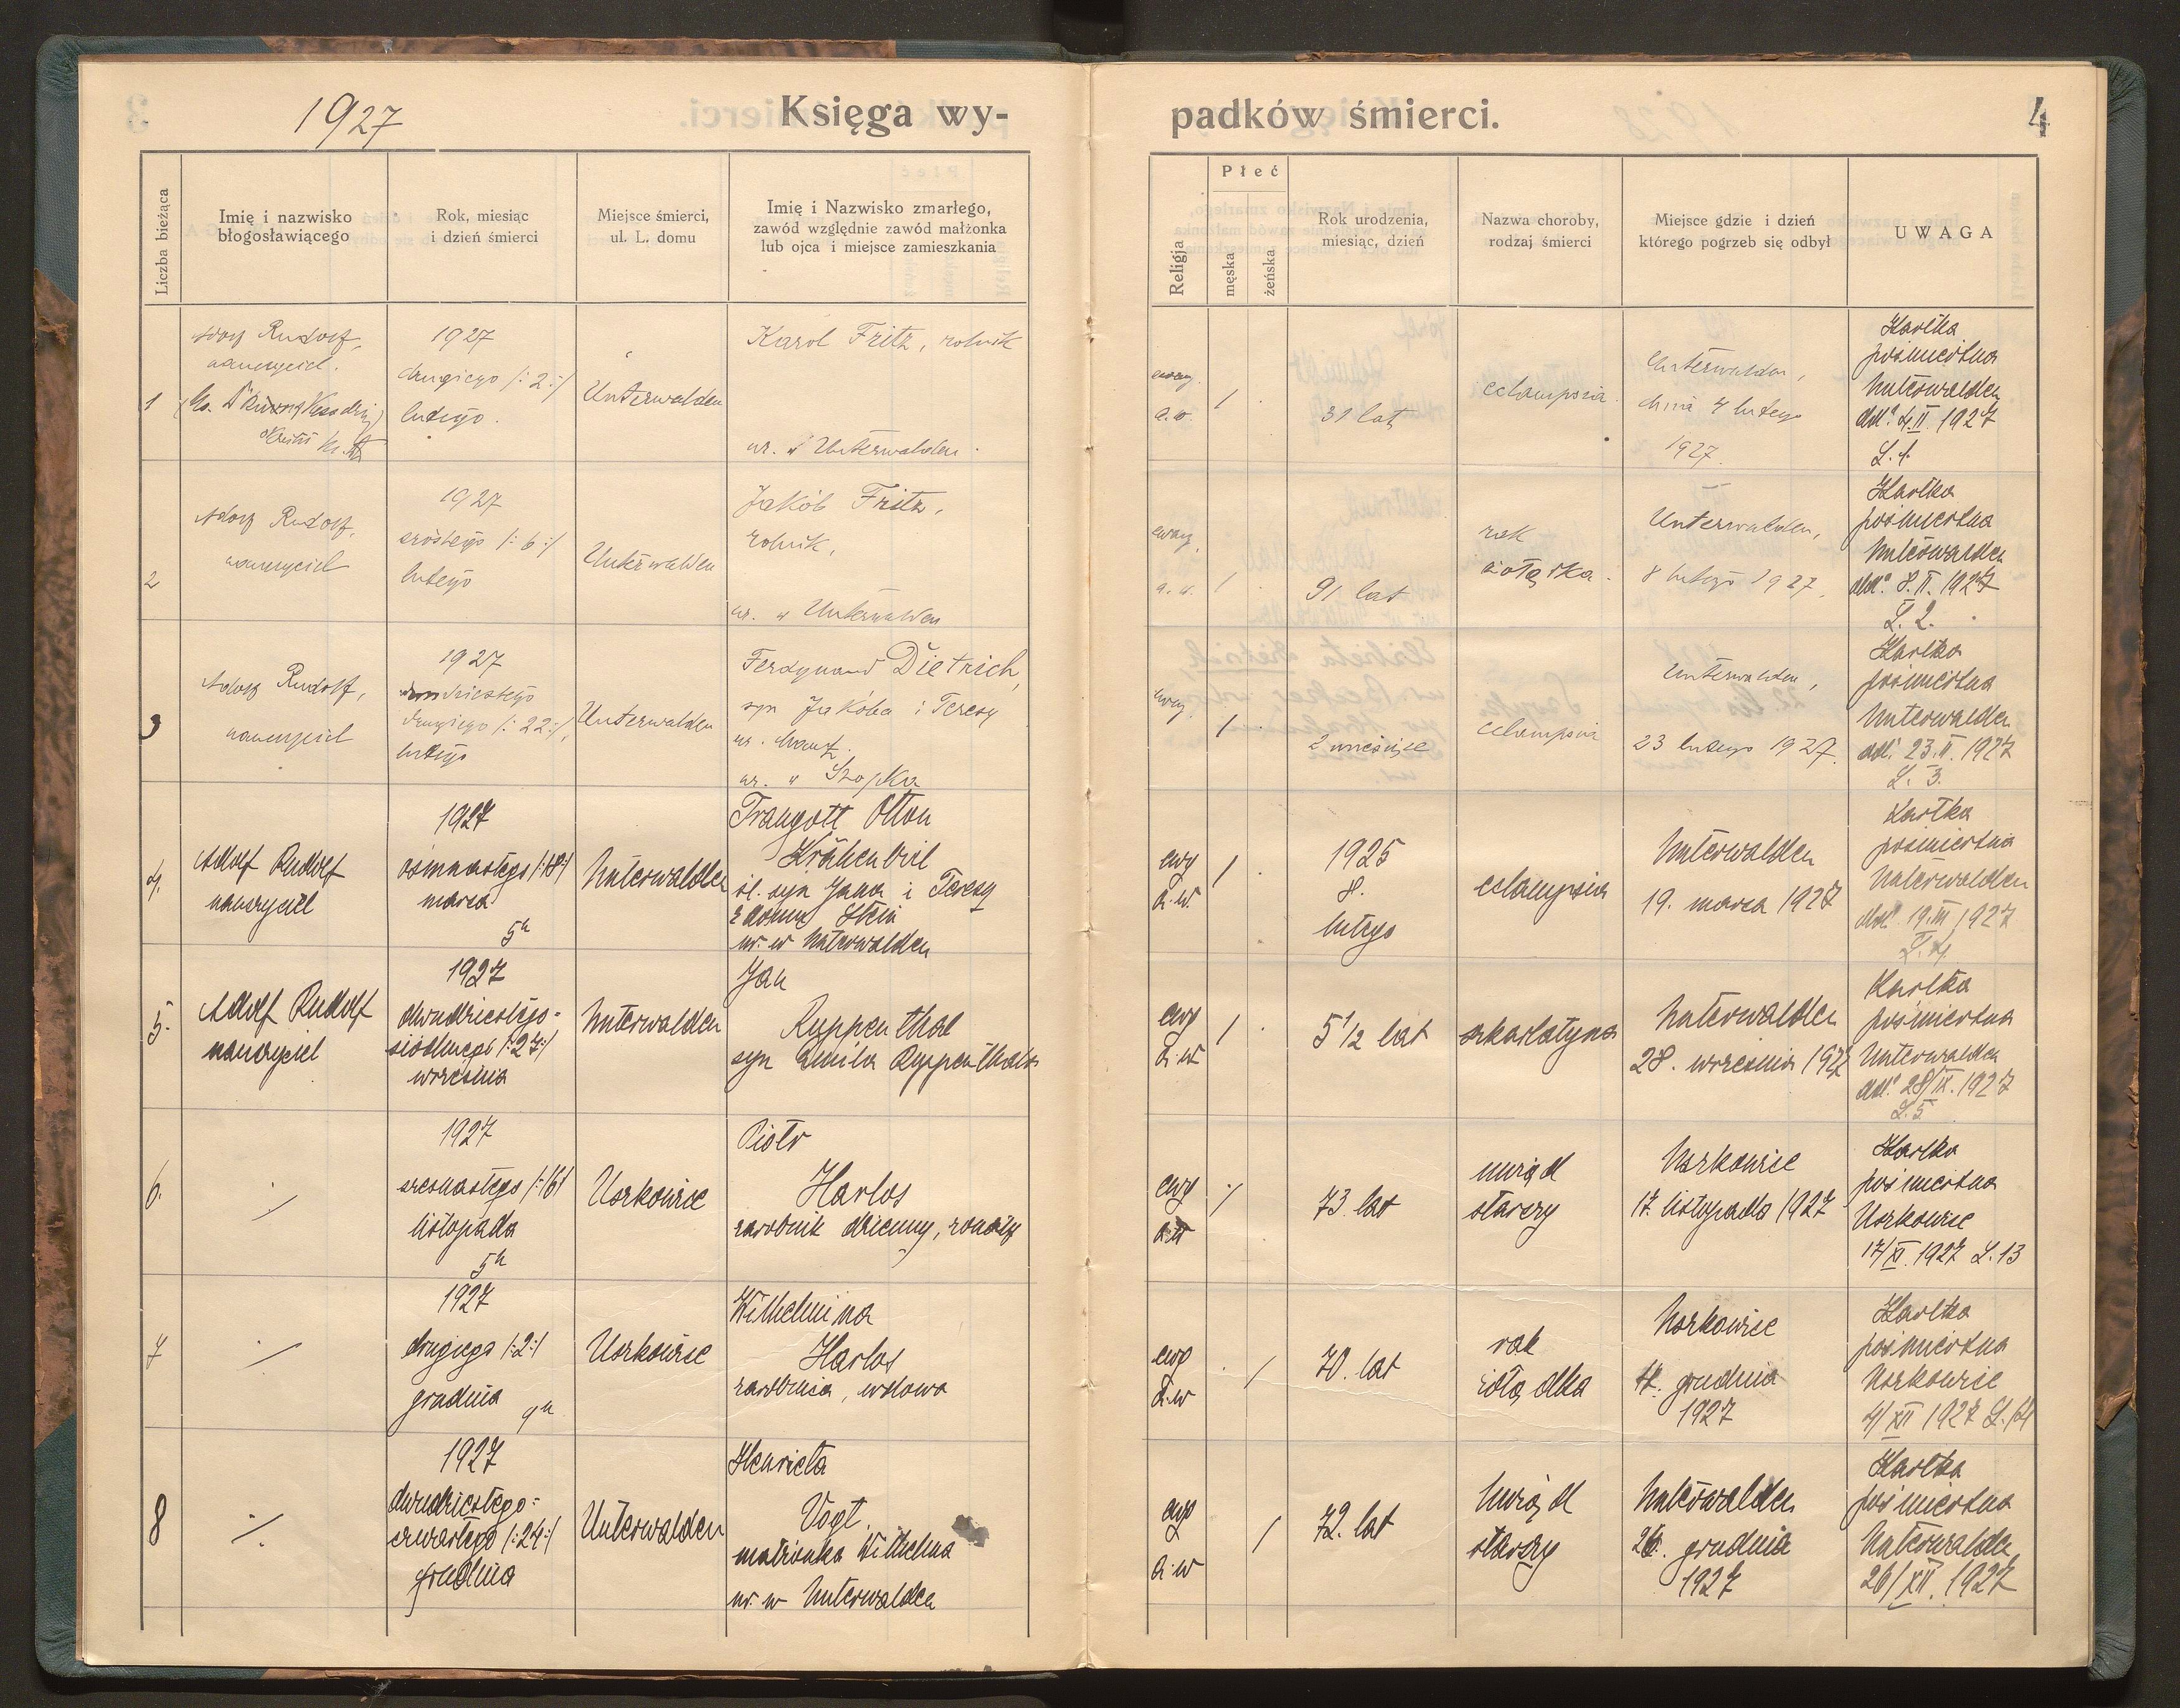 1927
Księga wy-
padków śmierci.
4
Liczba bieżąca
Imię i nazwisko
błogosławiącego
Rok, miesiąc
i dzień śmierci
Miejsce śmierci,
ul. L. domu
Imię i Nazwisko zmarłego,
zawód względnie zawód małżonka
lub ojca i miejsce zamieszkania
Religja
Płeć
męska
żeńska
Rok urodzenia,
miesiąc, dzień
Nazwa choroby,
rodzaj śmierci
Miejsce gdzie i dzień
którego pogrzeb się odbył
UWAGA
1
Adolf Rudolf,
nauczyciel.
1927
drugiego /:2:/
lutego.
Unterwalden
Karol Fritz, rolnik
ur. w Unterwalden.
ewang.
a.w.
/
31 lat
eclampsia.
Unterwalden,
dnia 4 lutego
1927.
Kartka
pośmiertna
Unterwalden
ddto 4.II.1927
L.1.
2
Adolf Rudolf,
nauczyciel
1927
szóstego /:6:/
lutego
Unterwalden
Jakób Fritz,
rolnik,
ur. w Unterwalden
ewang.
a.w.
/
91 lat
rak
żołądka.
Unterwalden,
8 lutego 1927.
Kartka
pośmiertna
Unterwalden
ddto 8.II.1927
L.2.
3
Adolf Rudolf,
nauczyciel
1927
dwudziestego
drugiego /:22:/,
lutego
Unterwalden
Ferdynand Dietrich,
syn Jakóba i Teresy
ur.
ur. w Szopka
ewang.
/
2 miesiące
eclampsia
Unterwalden,
23 lutego 1927.
Kartka
pośmiertna
Unterwalden
ddto 23.II.1927
L.3.
4.
Adolf Rudolf
nauczyciel
1927
ośmnastego /:18:/
marca
5h
Unterwalden
Traugott Otton
Krähenbil
śl. syn Jana i Teresy
z domu Stein
ur. w Unterwalden
ewg
a.w.
/
1925
8.
lutego
eclampsia
Unterwalden
19. marca 1927
Kartka
pośmiertna
Unterwalden
ddto 19.III 1927
L.4.
5.
Adolf Rudolf
nauczyciel
1927
dwudziestego-
siódmego /:27:/
września
Unterwalden
Jan
Ruppenthal
syn Emila Ruppenthala
ewg
a.w.
/
5 1/2 lat
szkarlatyna
Unterwalden
28. września 1927
Kartka
pośmiertna
Unterwalden
ddto 28/IX.1927
L.5
6.
1927
szesnastego /:16:/
listopada
5h
Uszkowice
Piotr
Harlos
zarobnik dzienny, żonaty
ewg
a.w
/
73. lat
uwiąd
starczy
Uszkowice
17. listopada 1927
Kartka
pośmiertna
Uszkowice
17/XI.1927 L.13
7
1927
drugiego /:2:/
grudnia 9h
Uszkowice
Wilhelmina
Harlos
zarobnica, wdowa
ewg
a.w
/
70. lat
rak
żołądka
Uszkowice
4. grudnia
1927
Kartka
pośmiertna
Uszkowice
4/XII 1927 L.14
8
1927
dwudziestego-
czwartego /:24:/
grudnia
Unterwalden
Henrieta
Vogt
małżonka Wilhelma
ur. w Unterwalden
ewg
a.w
/
72. lat
Uwiąd
starczy
Unterwalden
26. grudnia
1927
Kartka
pośmiertna
Unterwalden
26/XII.1927